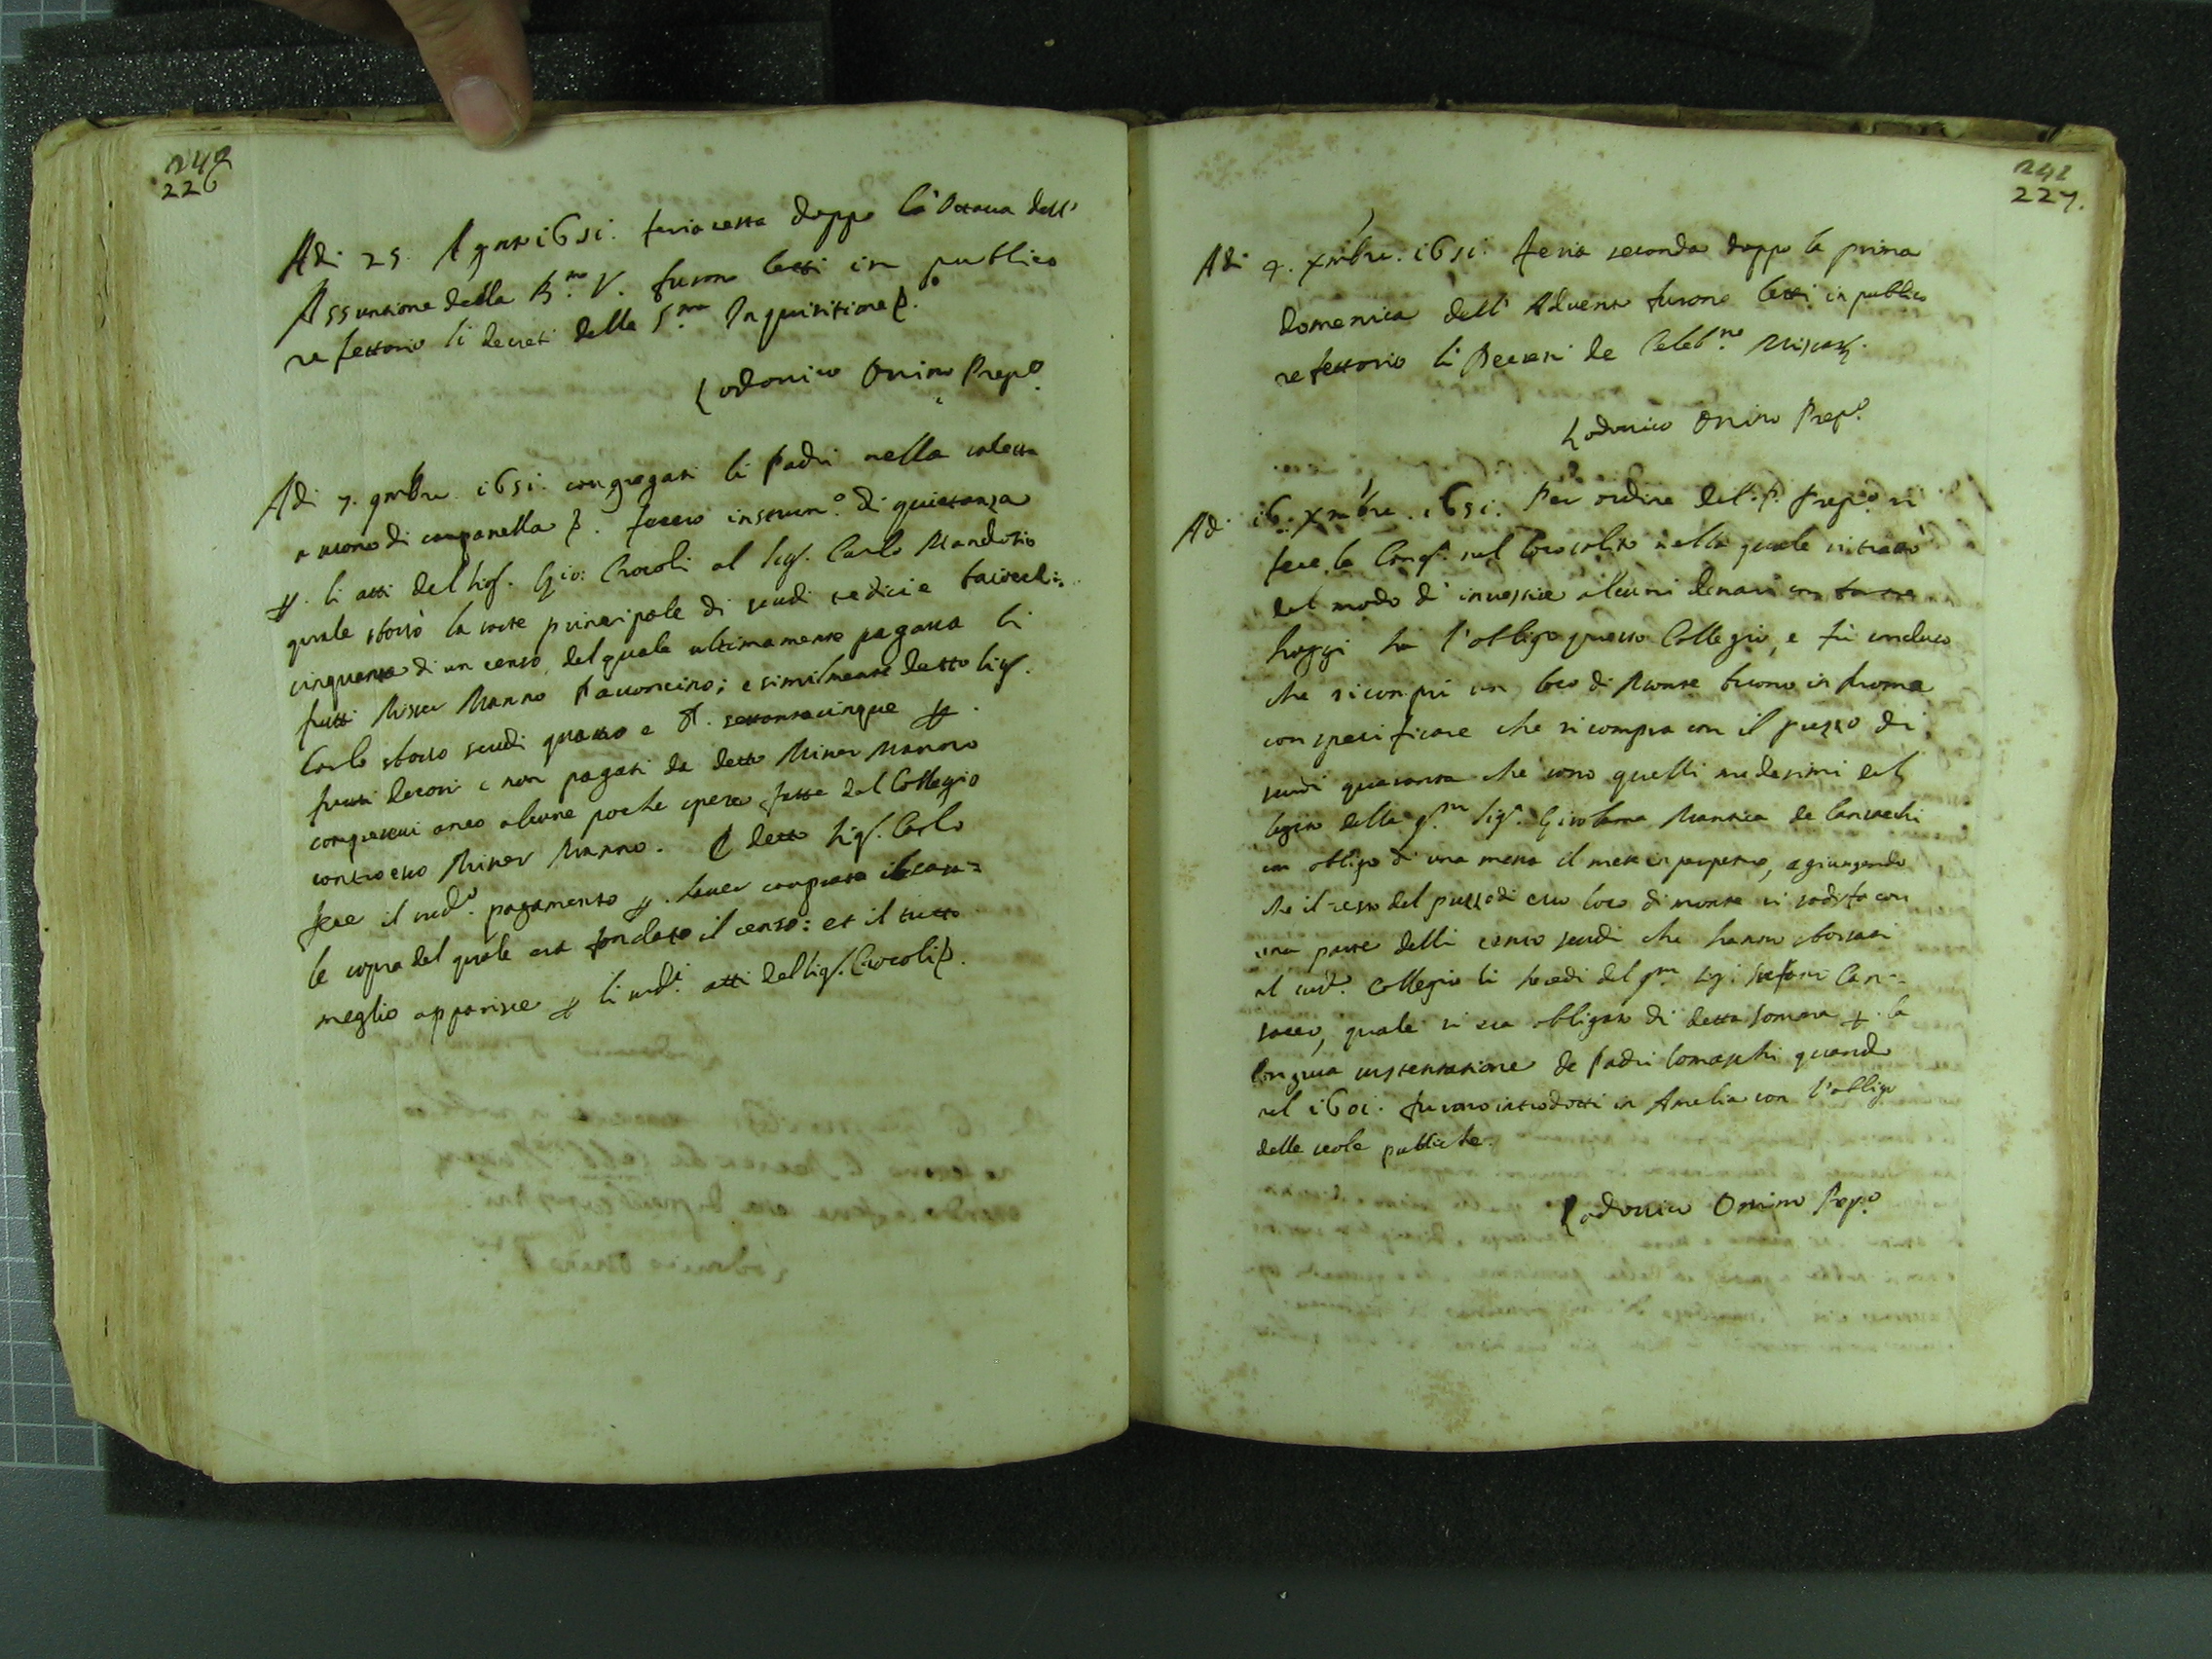 240
226
Adi 25. Agosto 1651. feria sesta doppo la Ottava dell'
Assuntione della B.ma V. furon letti in publico
refettorio li decreti della S.ma Inquisitione &.
Lodovico Orsino Prep.o
Adi 7. 9mbre 1651. congregati li Padri nella saletta
a suono di campanella &. fecero instrum.o di quietanza
p. li atti del Sig.r Gio: Crocoli al Sig.r Carlo Mandosio
quale sborsò la sorte principale di scudi sedici e baiocchi:
cinquanta di un censo, del quale ultimamente pagava li
frutti Mister Manno; e similmente detto Sig.r
Carlo sborso scudi quattro e settantacinque p.
frutti decorsi e non pagati da detto Mister Manno
compresevi anco alcune poche spese fatte dal Collegio
contro esso Mister Manno. E detto Sig.r Carlo
fece il sud.o pagamento p. haver comprato il
le sopra del quale era fondato il censo: et il tutto
meglio apparisce p. li sud.i atti del Sig.r Crocoli &.
241
227.
Adi 4. Xmbre. 1651. feria seconda doppo la prima
Domenica dell'Advento furono letti in publico
refettorio li Decreti de Celeb.ne Missarũ.
Lodovico Orsino Prep.o
Adi 16. Xmbre. 1651. Per ordine del P. Prep.o si
fece la Cong.e nel loco solito nella quale si trattò
del modo d'investire alcuni denari
hoggi ha l'obligo questo Collegio, e fù concluso
che si compri un loco di Monte buono in Roma
con specificare che si compra con il prezzo di
scudi quaranta che sono quelli medesimi del
legato della q.m Sig.ra Girolama de Cansacchi
con obligo di una messa il mese in perpetuo, agiungendo
che il resto del prezzo di esso loco di monte si sodisfa con
una parte delli cento scudi che hanno sborsati
al sud.o Collegio li heredi del q.m Sig.r Stefano Can-
sacco, quale si era obligato di detta somma p. la
congrua sustentatione de Padri Somaschi quando
nel 1601. furono introdotti in Amelia con l'obligo
delle scole publiche.
Lodovico Orsino Prep.o